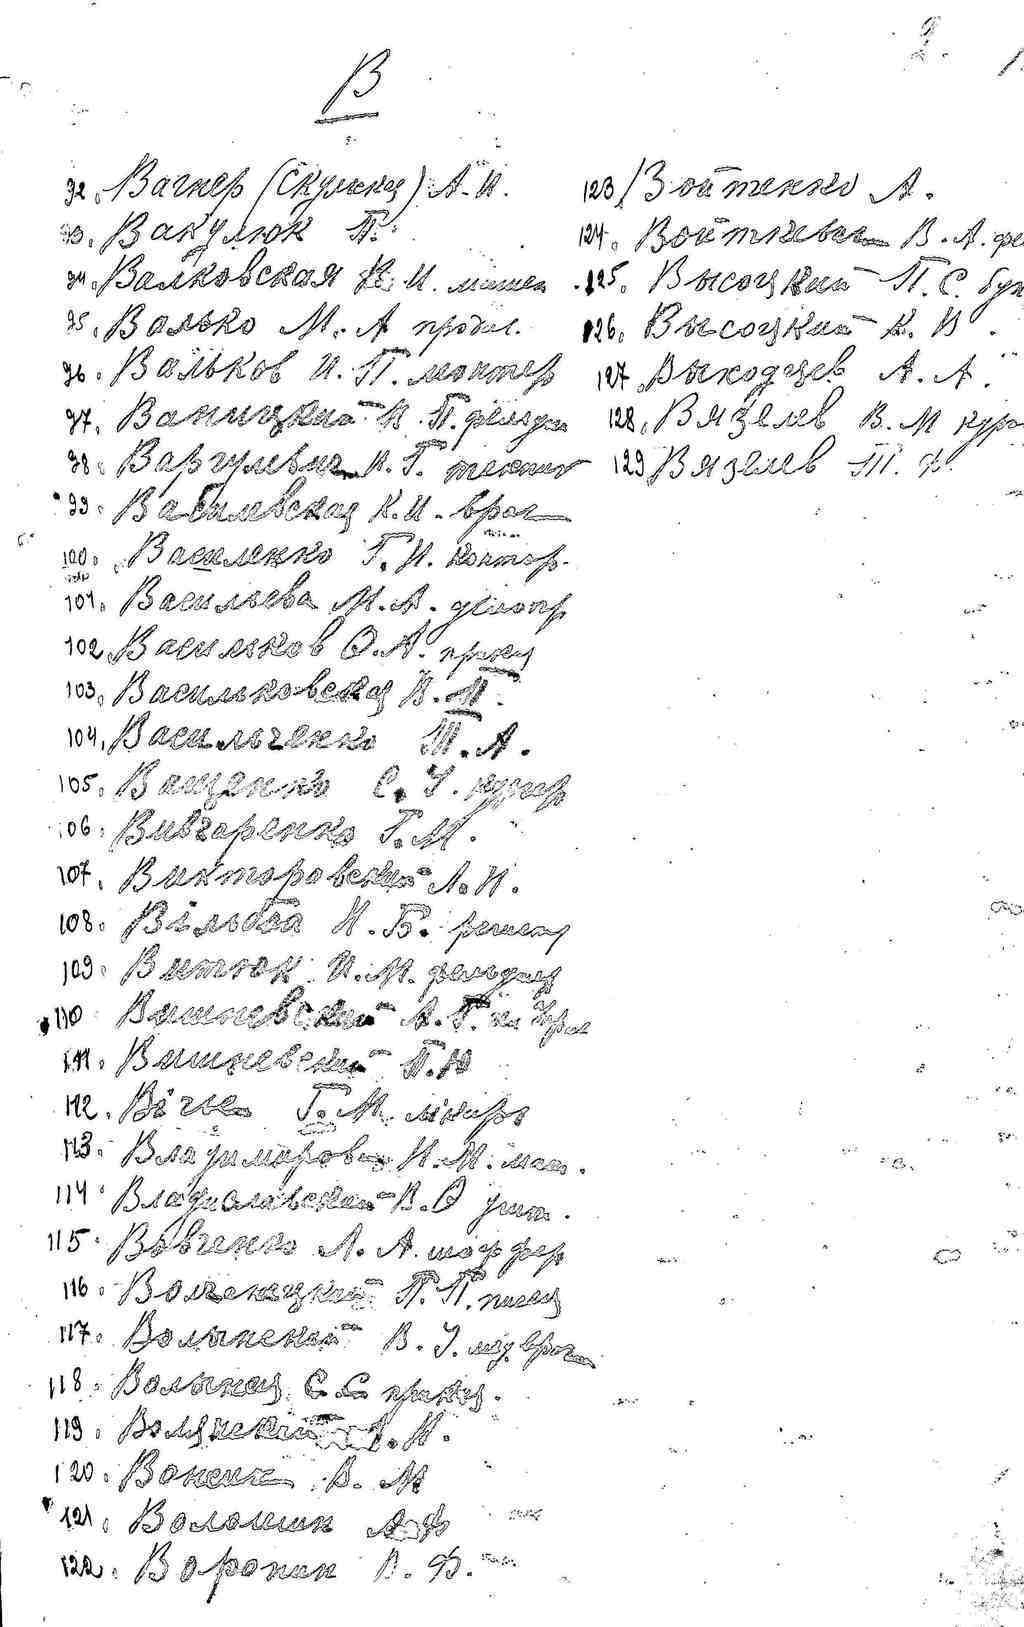 2.
В
92. Вагнер (Скулкец) А.И.
93. Вакулюк П.
94. Валковская В.И. машин
95. Валько М.А продав.
96. Вальков И.П. монтер
97. Ваницкий И.П. фельдш
98. Варгулевич И.Г. техник
99. Василевская К.И. врач
100. Василенко Г.И. контор.
101. Васильева М.А. делопр
102. Васильков О.А. приказ
103. Васильковская В.П.
104. Васильченко Т.А.
105. Ващенко С.У. кучер
106. Вивгаренко Г.М.
107. Викторовский Л.И.
108. Вільбоа И.Б.
109. Витюк И.М. фельдшер
110 Вишневский А.Г.
111. Вишневский П.Ю
112. Г.М. лікарь
113. Владимирович И.М. маш.
114. Владиславский В.О учит.
115. Вовченко Л.А. шоффер
116. Волчанецкий П.П. писец
117. Волынский В.У. мед. врач
118. Волынец С.С приказ.
119. Волянский И.
120. Вонсик В.М
121. Воломин А Ф
122. Воропин В.Ф.
123 Войтенко А.
124. Войткевич В.А. фе
125. Высоцкий П.С. бух
126. Высоцкий К.В.
127. Выходцев А.А.
128. Вязелев В.М курь
129 Вязелев Т.Ф.